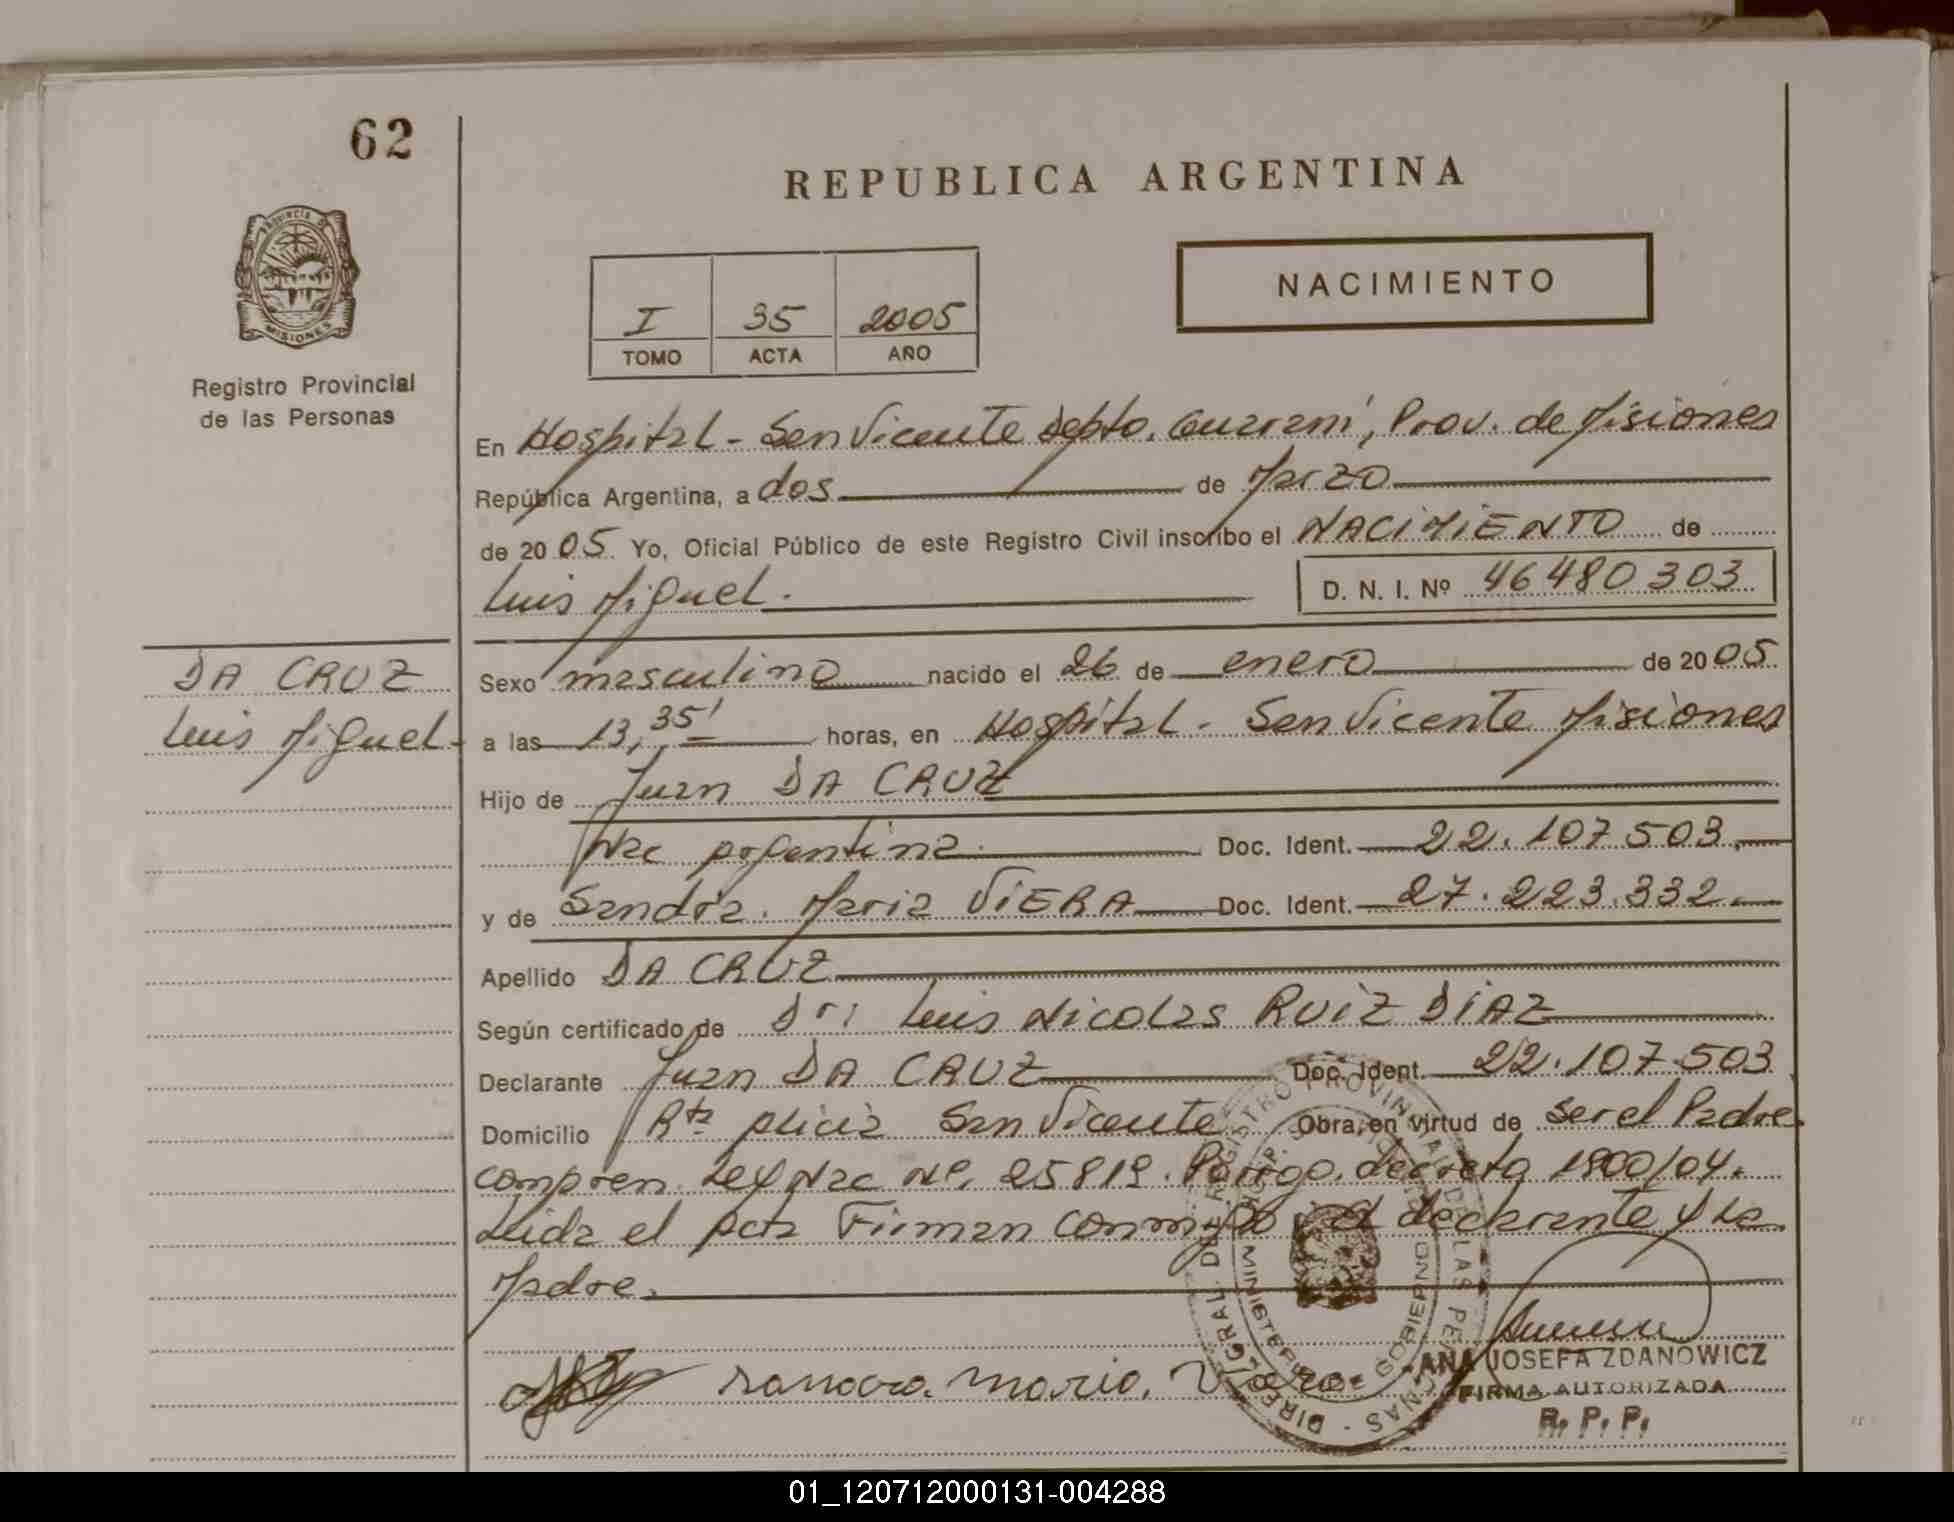 62
REPUBLICA ARGENTINA
PROVINCIA DE
MISIONES
Registro Provincial
de las Personas
I 35 2005
TOMO ACTA AÑO
NACIMIENTO
En Hospital - San Vicente Depto. Guaraní, Prov. de Misiones
República Argentina, a dos de Marzo
de 2005. Yo, Oficial Público de este Registro Civil inscribo el NACIMIENTO de
Luis Miguel. D. N. I. Nº 46480303
DA CRUZ
Luis Miguel
Sexo masculino nacido el 26 de enero de 2005
a las 13,35' horas, en Hospital - San Vicente Misiones
Hijo de Juan DA CRUZ
Nac argentina. Doc. Ident. 22.107.503.
y de Sandra. Maria ViERA Doc. Ident. 27.223.332.
Apellido DA CRUZ
Según certificado de Dr: Luis Nicolas RUiZ DiAZ
Declarante Juan DA CRUZ Doc. Ident. 22.107.503
Domicilio Rta alicia San Vicente Obra, en virtud de ser el Padre
compren. Ley Nac Nº. 25819. decreto 1800/04.
Leida el acta Firman conmigo el declarante y la
Madre.
Maria.
ANA JOSEFA ZDANOWICZ
FIRMA AUTORIZADA
R. P. P.
DIREC. GRAL. DEL REGISTRO PROVINCIAL DE LAS PERSONAS
MINISTERIO GOBIERNO
01_120712000131-004288